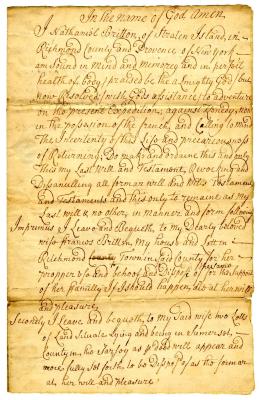 In the name of God Amen
I Nathaniel Britton, of Straten Island, in
Richmond County and Provence of New York
am Sound in Mind and Memorey and in perfect
health of body (praised be the almighty God) but
now Resolved (with Gods assistance) to adventure
on the present Expedition, against Canedy, now
in the possasion of the french, and Calling to mind
The Incertenty of this Life and precariousness
of Returning; Do make and ordaine this and only
this my Last Will and Testament, Revocking and
Disanulling all formar will and wills Testament
and Testaments and this only to remaine as my
Last will & no other, in manner and form following
Imprimus I Leave and Bequeth, to my dearly beloved
wife francis Britton, My house and Lott in
Richmond Town in Said County for her
propper use and behoof and Dispose of for the
of her family If I should happen, also at her will
and pleasure
Secondly I Leave and bequeth, to my Said wife two Lotts
of Land Situate Lying and being in Sumerset,
County in the Jarsey as p deed will appear and
more fully Set forth, to be Disposed of as the formar
at her will and pleasure